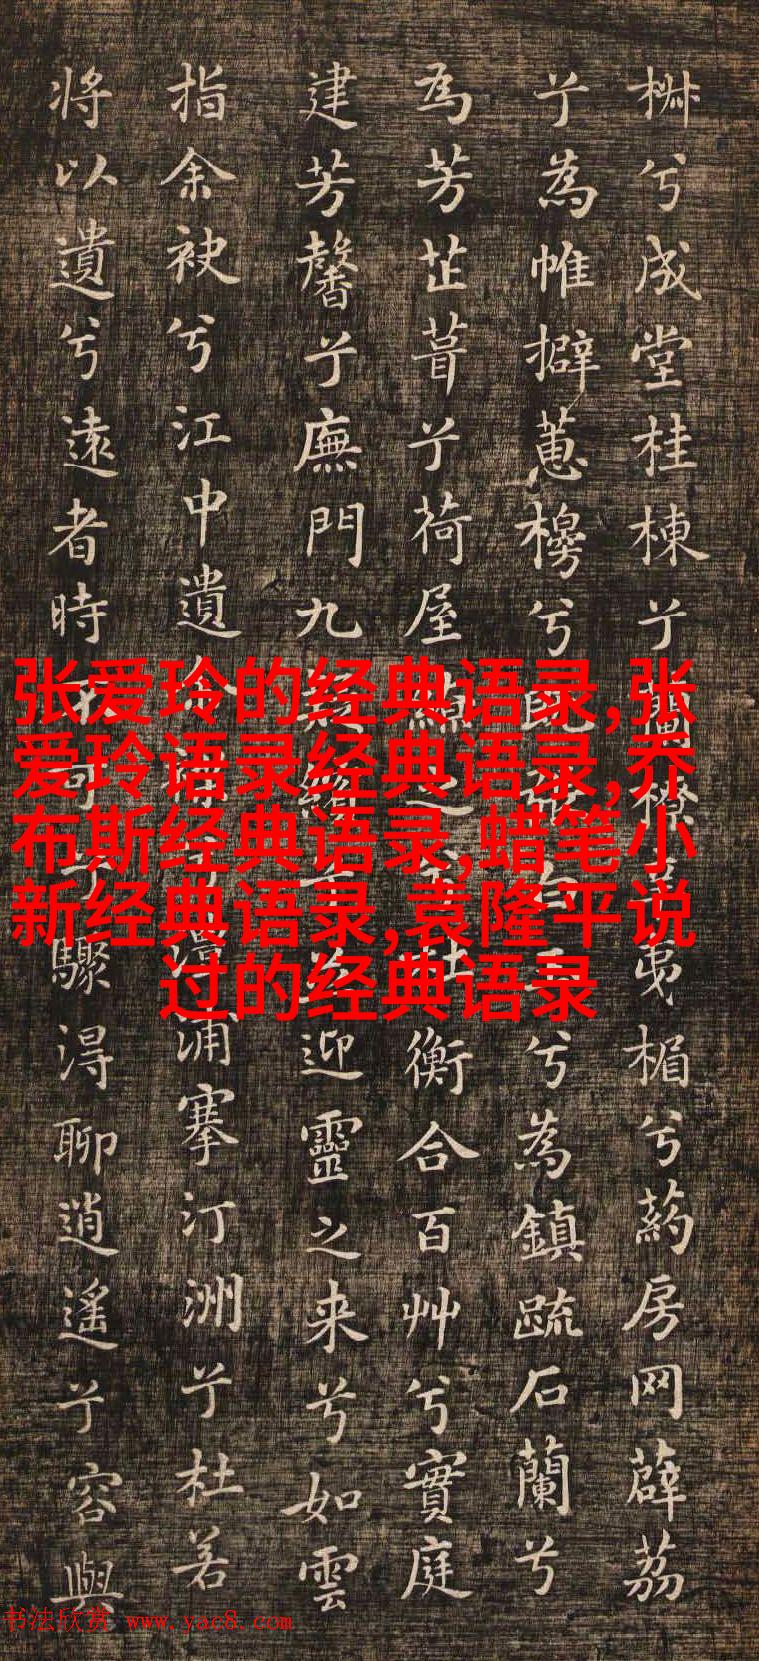 兮成堂桂棟兮橑夷楣兮葯房网薜荔
兮為帷擗蕙櫋兮既白玉兮為鎮疏石蘭兮
為芳芷葺兮荷屋之杜衡合百艸兮實庭
建芳馨兮廡門九迎靈之来兮如雲
指余袂兮江中遺浦搴汀洲兮杜若
將以遺兮遠者時不可兮驟得聊逍遙兮容與
张爱玲的经典语录,张
爱玲语录经典语录,乔
布斯经典语录,蜡笔小
新经典语录,袁隆平说
过的经典语录
书法欣赏 www.yac8.com